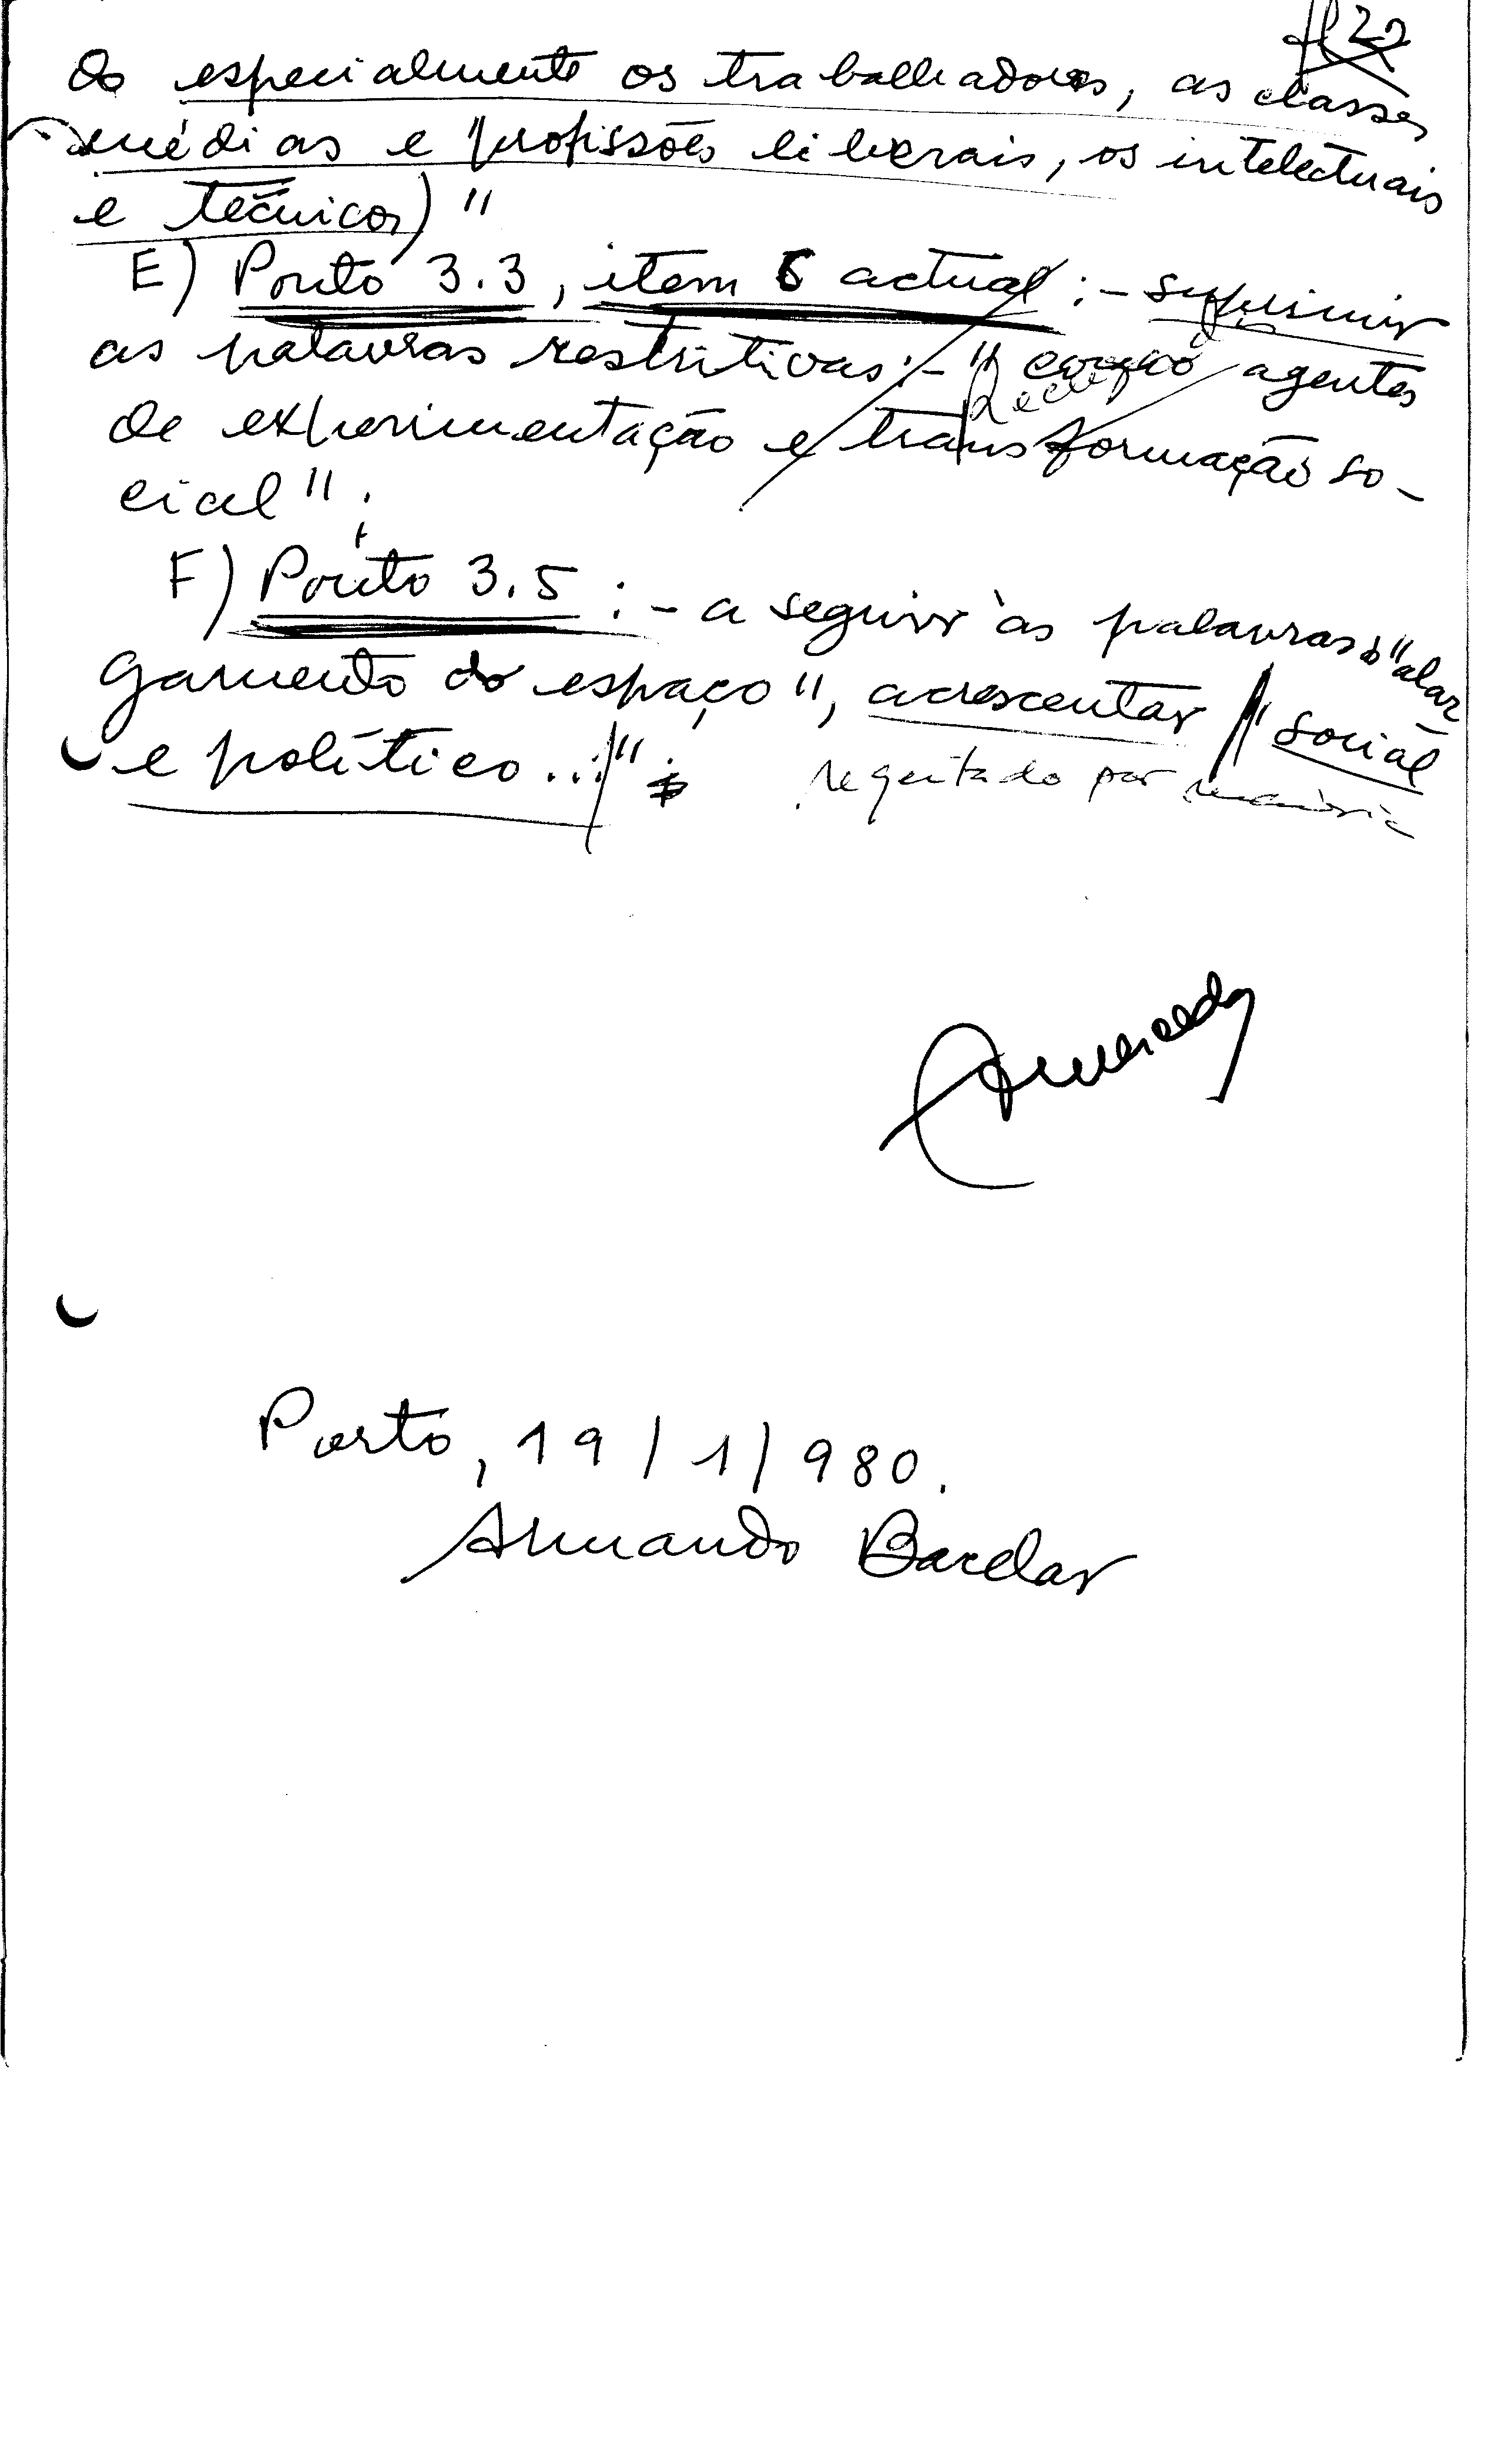 fl 22
do especialmente os trabalhadores, as classes
médias e profissões liberais, os intelectuais
e técnicos)"
E) Ponto 3.3, item 6 actual :- suprimir
as palavras restritivas :- " como agentes
de experimentação e transformação so-
cial" ;
F) Ponto 3.5 :- a seguir às palavras "alar
gamento do espaço", acrescentar " social
e político..." ;
regeitado por maioria
Porto, 19/1/980.
Armando Bacelar